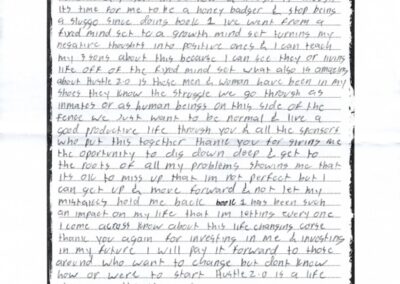 its time for me to be a honey badger & stop being
a sluggo since doing book 1 Ive went from a
fixed mind set to a growth mind set turning my
negative thoughts into positive ones & I can teach
my sons about this because I can see they or living
life off of the fixed mind set what also is amazing
about Hustle 2.0 is those men & woman have been in my
shoes they know the struggle we go through as
inmates or as human beings on this side of the
fence we just want to be normal & live a
good productive life through you & all the sponsors
who put this together thank you for giving me
the oportunity to dig down deep & get to
the roots of all my problems showing me that
its ok to miss up that im not perfect but I
can get up & move forward & not let my
mistakes hold me back book 1 has been such
an impact on my life that im letting every one
I come across know about this life changing corse
thank you again for investing in me & investing
in my future I will pay it forward to those
around who want to change but dont know
how or were to start Hustle 2.0 is a life